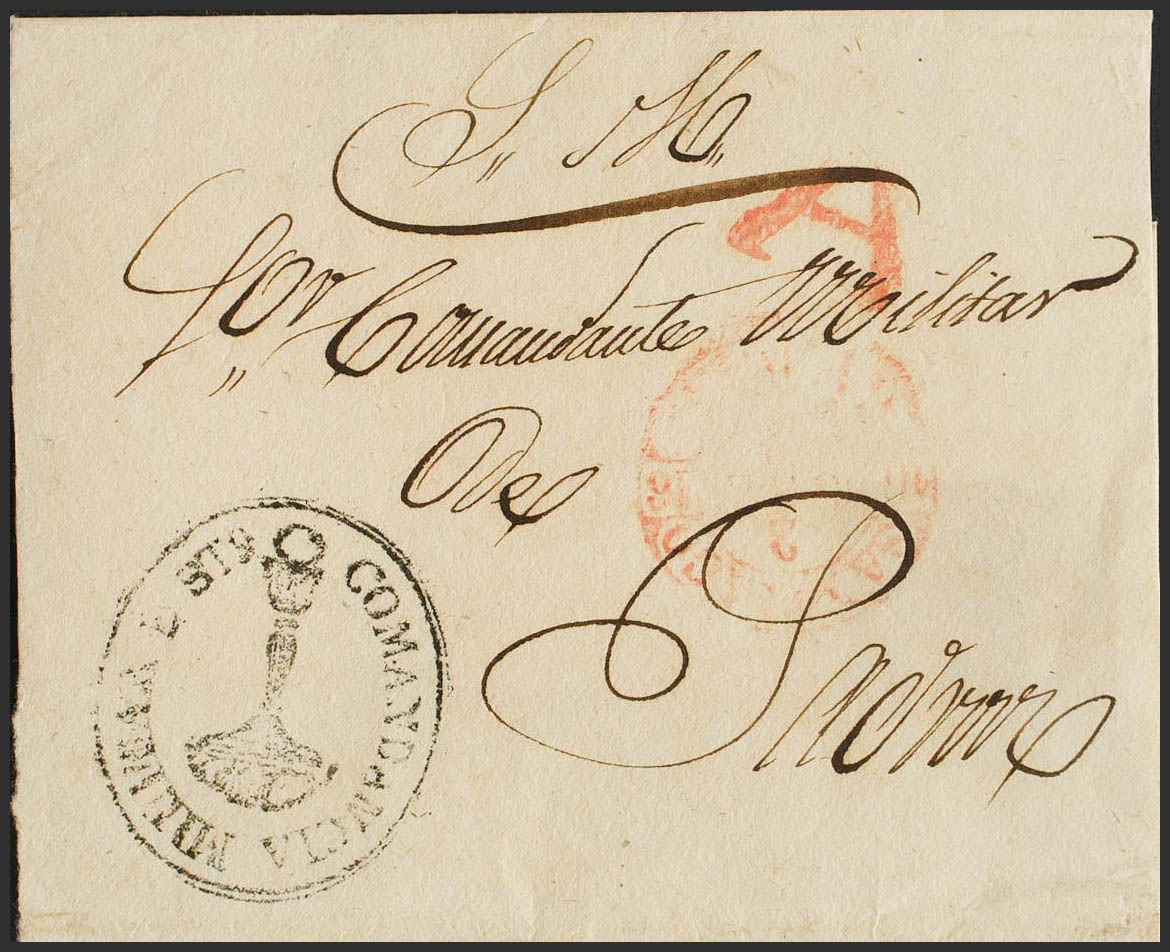 S,, M,,
Sor,, Comandante Militar
de
Padron
COMANDANCIA MILITAR D STGO
A
5